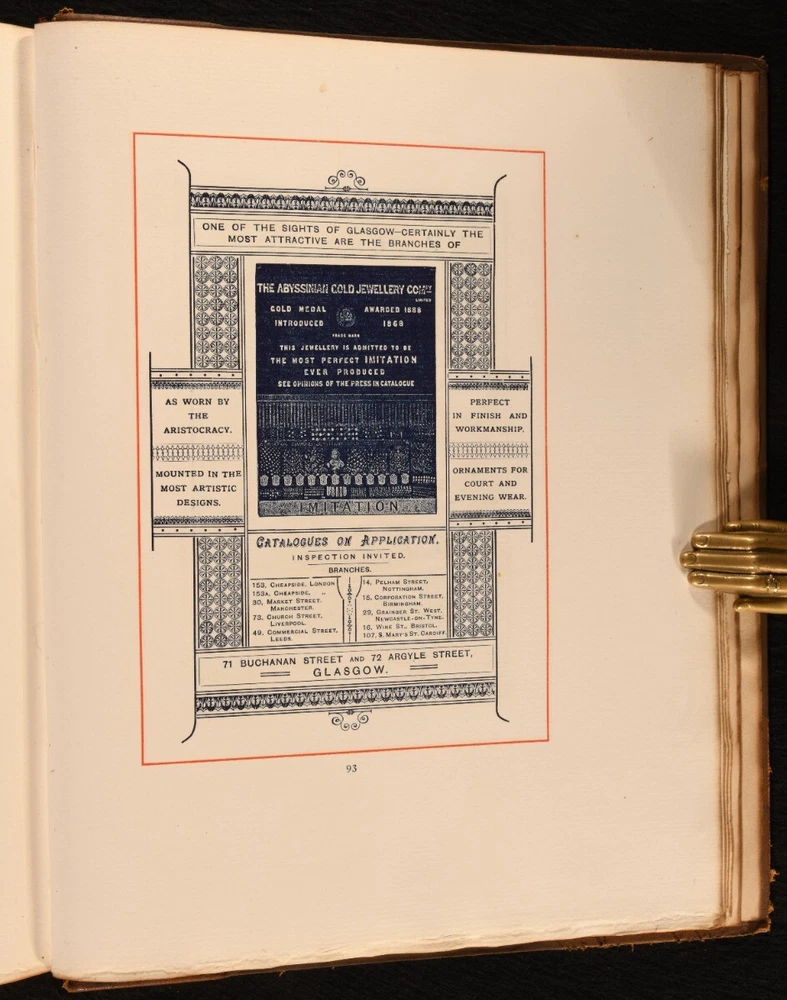 ONE OF THE SIGHTS OF GLASGOW—CERTAINLY THE
MOST ATTRACTIVE ARE THE BRANCHES OF
THE ABYSSINIAN GOLD JEWELLERY COMLY
LIMITED
GOLD MEDAL AWARDED 1888
INTRODUCED 1868
TRADE MARK
THIS JEWELLERY IS ADMITTED TO BE
THE MOST PERFECT IMITATION
EVER PRODUCED
SEE OPINIONS OF THE PRESS IN CATALOGUE
IMITATION
AS WORN BY
THE
ARISTOCRACY.
MOUNTED IN THE
MOST ARTISTIC
DESIGNS.
PERFECT
IN FINISH AND
WORKMANSHIP.
ORNAMENTS FOR
COURT AND
EVENING WEAR.
CATALOGUES ON APPLICATION.
INSPECTION INVITED.
BRANCHES.
153, CHEAPSIDE, LONDON
153A, CHEAPSIDE, „
30, MARKET STREET,
MANCHESTER.
73, CHURCH STREET,
LIVERPOOL.
49, COMMERCIAL STREET,
LEEDS.
14, PELHAM STREET,
NOTTINGHAM.
15, CORPORATION STREET,
BIRMINGHAM.
29, GRAINGER ST. WEST,
NEWCASTLE-ON-TYNE.
16, WINE ST., BRISTOL.
107, S. MARY'S ST. CARDIFF.
71 BUCHANAN STREET AND 72 ARGYLE STREET,
GLASGOW.
93